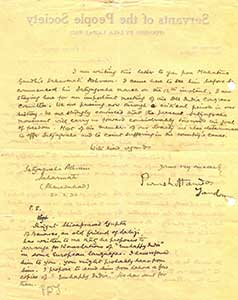 Servants of the People Society
I am writing this letter to you from Mahatma
Gandhi's Sabarmati Ashram. I came here to see him before he
commenced his Satyagraha march on the 12th instant. I am
staying here for an important meeting of the All India Congress
Committee. We are passing now through a critical period in our
history. We are strongly convinced that the present Satyagraha
movement will carry us forward considerably towards our goal
of freedom. Most of the members of our Society are also determined
to offer Satyagraha and to court suffering in the country's cause.
With kind regards
Satyagraha Ashram
Sabarmati
(Ahmedabad)
20.3.30
Yours very sincerely
Tandon
P.S.
Shivaprasad Gupta
of Benares, an old friend of Lalaji
has written to me that he proposes to
arrange for translation of "Unhappy India"
in some European languages. I have referred
him to you. You might probably hear from
him. I propose to send him a few
copies of "Unhappy India". He has sent for
them.